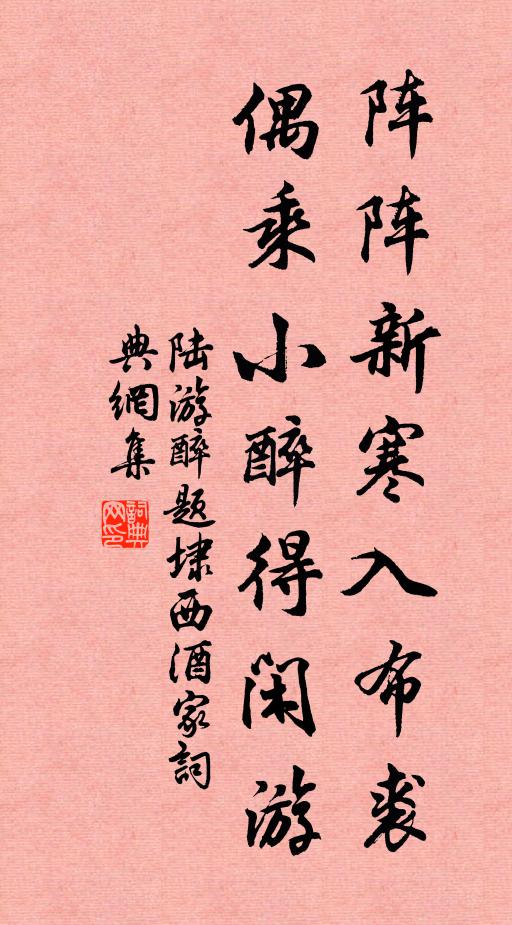 阵阵新寒入布裘
偶乘小醉得闲游
陆游醉题埭西酒家詞
典網集
詞典网印